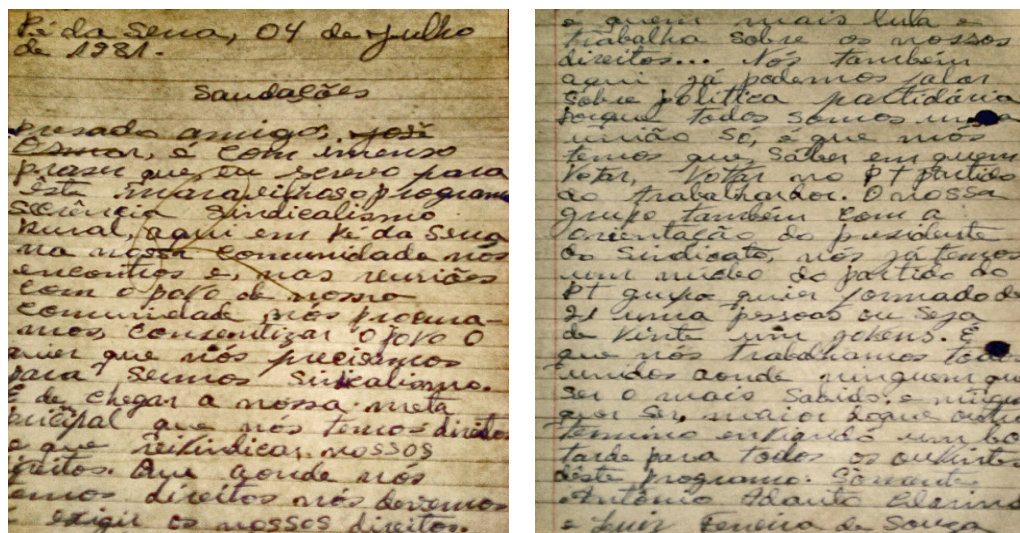 Pé da Serra, 04 de julho
de 1981.
Saudações
presado amigo, José
Osmar, é com imenso
praser que eu screvo para
este maravilhoso program
secrência Sindicalismo
Rural, aqui em Pé da Serra
na nossa comunidade nos
encontros e, nas reuniões
com o povo de nossa
comunidade nós procura-
mos, consentizar o povo o
quier que nós precisamos
para sermos Sindicalismo.
É de chegar a nossa meta
principal que nós temos direitos
e que reivindicar nossos
ireitos. Que aonde nós
emos direitos nós devemos
exigir os nossos direitos.
é quem mais luta e
trabalha sobre os nossos
direitos... Nós também
aqui já podemos falar
sobre politica partidária
porque todos somos uma
união só, é que nós
temos que, saber em quem
votar, votar no PT partido
do trabalhardor. O nossa
grupo também com a
orientação do presidente
do sindicato, nós já temos
um núcleo do partido do
PT grupo quier formado de
21 uma pessoas ou seja
de vinte um jovens. É
que nós trabalhamos todo
unidos aonde ninguem que
ser o mais sabido, e ningu
quer ser, maior doque outro
termino enviando um bo
tarde para todos os ouvintes
dêste programa. Somente
Antônio Adauto
e Luiz Ferreira de Souza